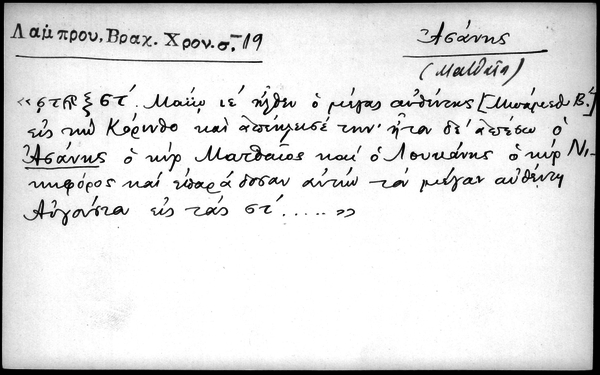 Λαμπρου, Βραχ. Χρον. σ. 19
Ἀσάνης
(Ματθαῖος)
«ςτπξστ΄. Μαΐῳ ιε΄ ἦλθεν ὁ μέγας αὐθέντης [Μωάμεθ Β.΄]
εἰς τὴν Κόρινθο καὶ ἀπέκλεισέ την· ἦταν δὲ ἀπέσω ὁ
Ἀσάνης ὁ κὺρ Ματθαῖος καὶ ὁ Λουκάνης ὁ κὺρ Νι-
κηφόρος καὶ ἐπαράδοσαν αὐτὴν τὸν μέγαν αὐθέντη
Αὐγούστῳ εἰς τὰς στ΄.....»